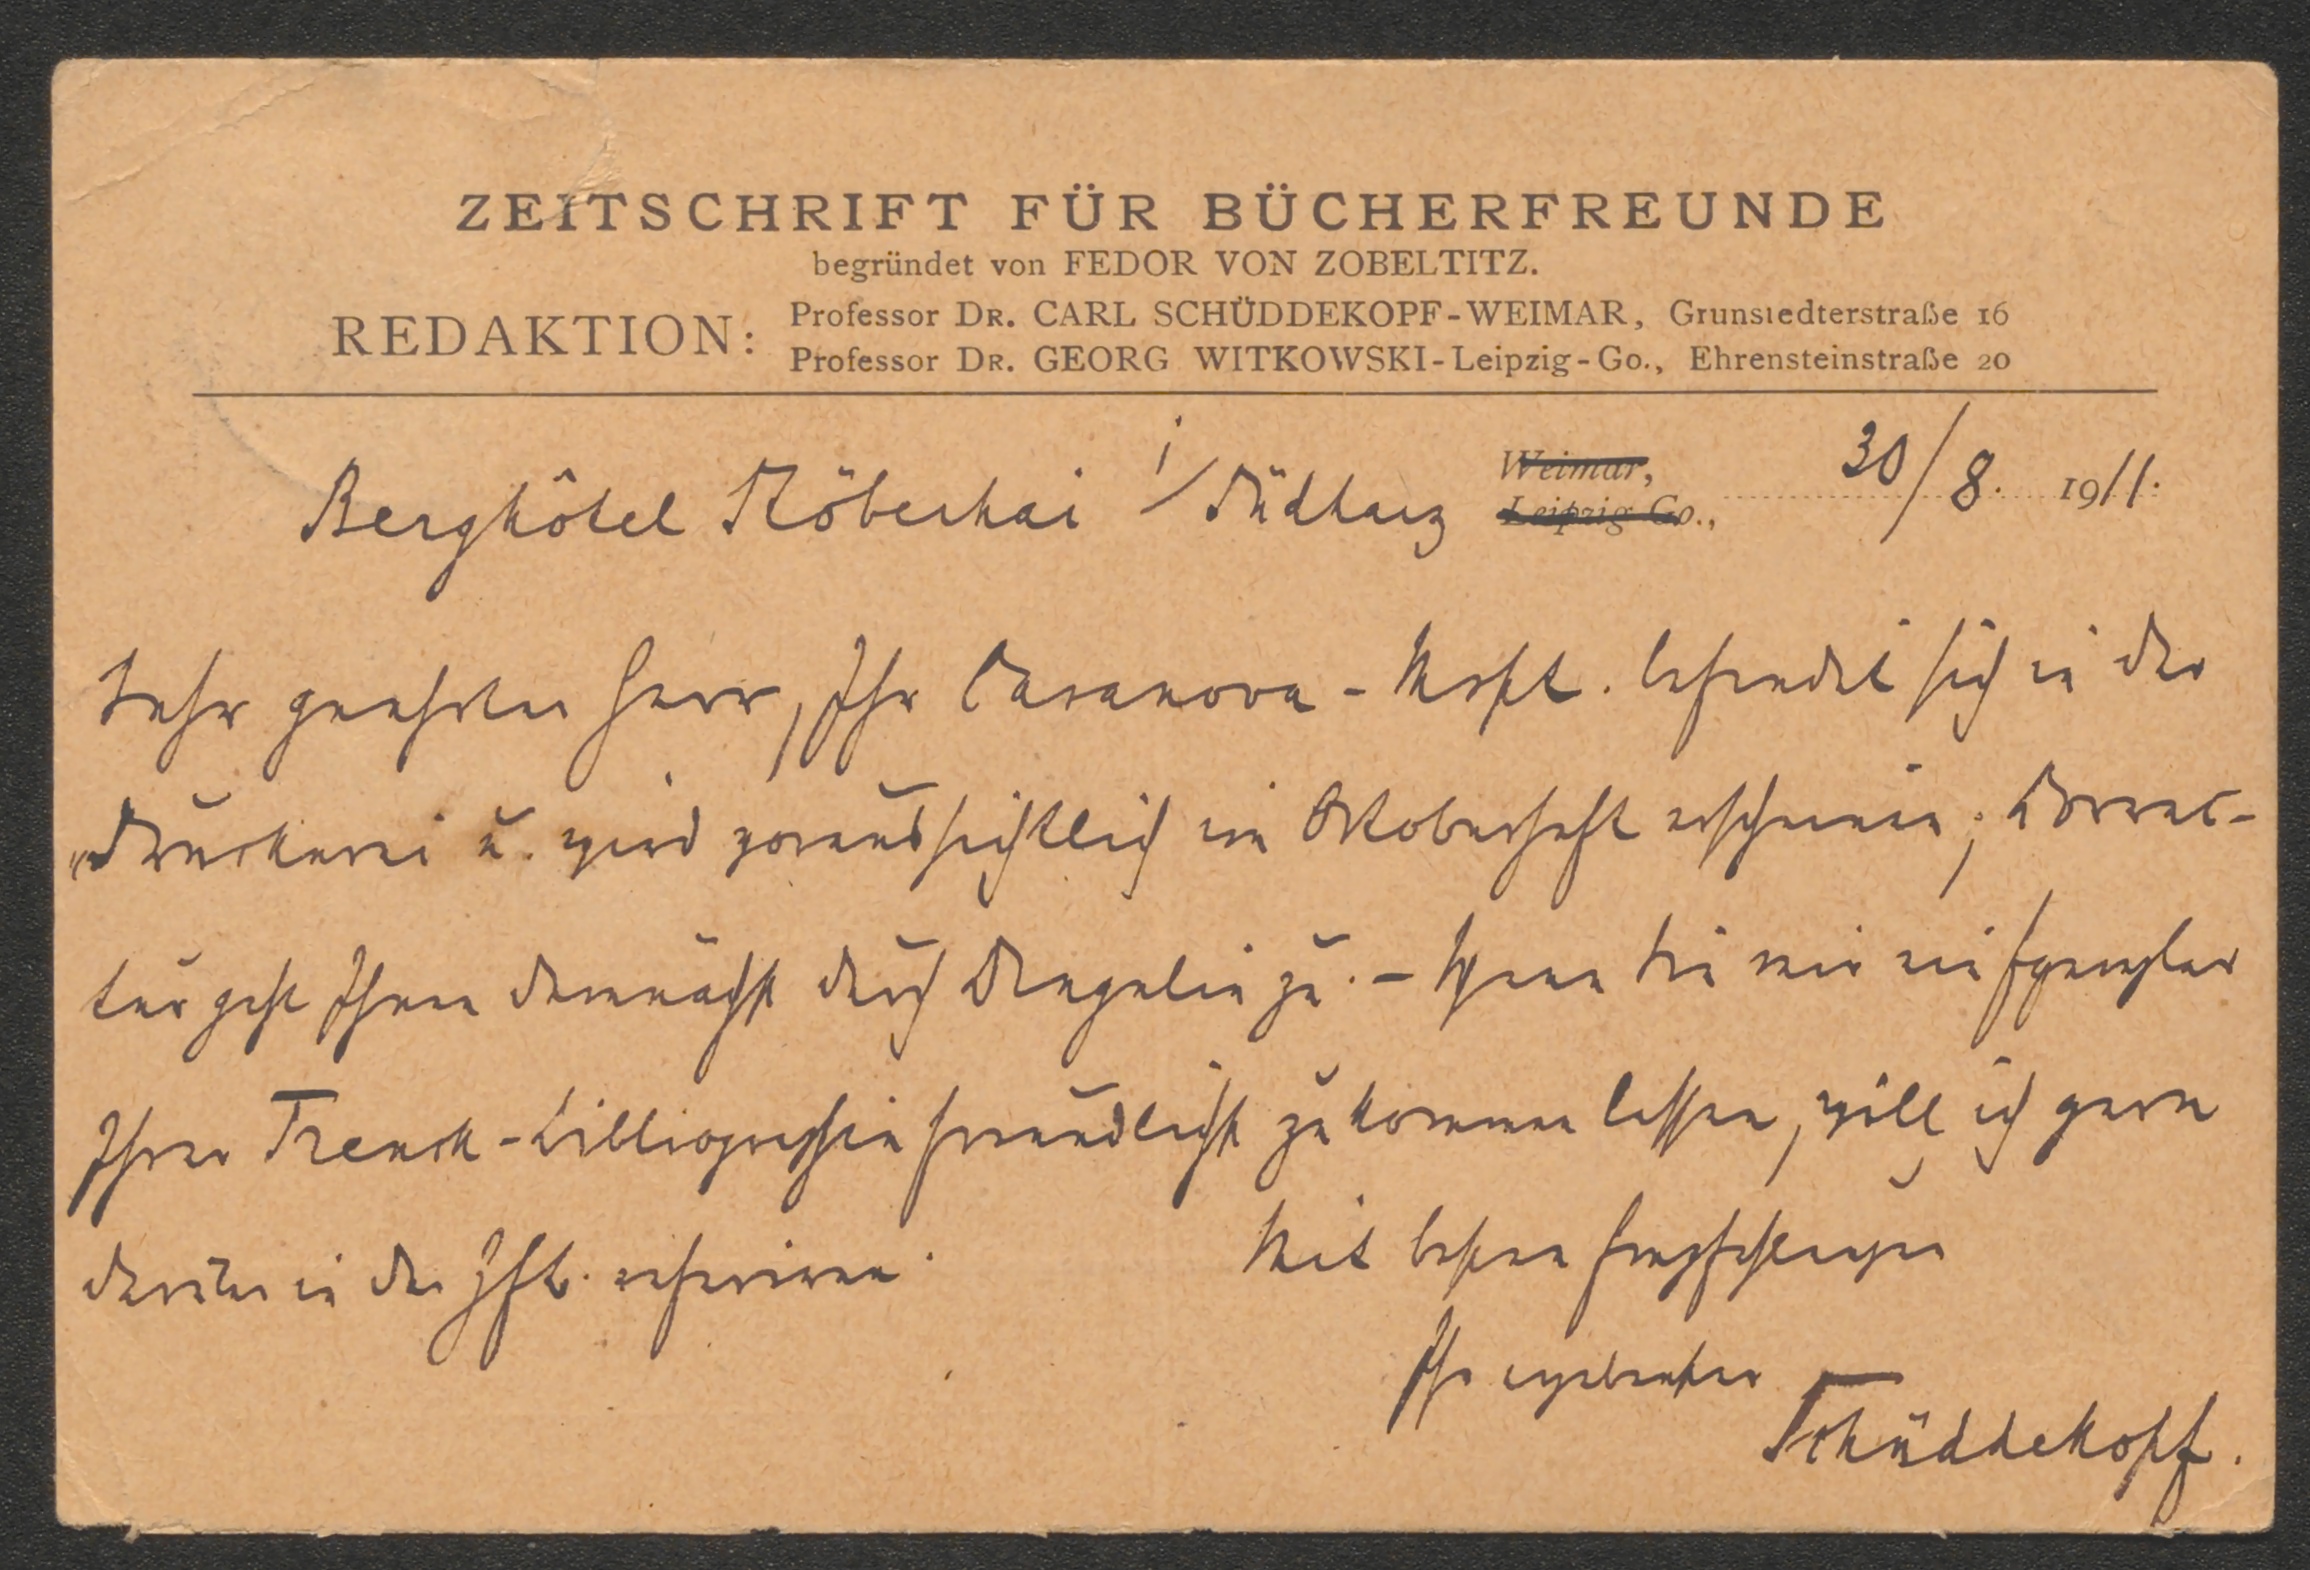 ZEITSCHRIFT FÜR BÜCHERFREUNDE
begründet von FEDOR VON ZOBELTITZ.
REDAKTION: Professor DR. CARL SCHÜDDEKOPF-WEIMAR, Grunstedterstraße 16
Professor DR. GEORG WITKOWSKI-Leipzig-Go., Ehrensteinstraße 20
Weimar,
Berghôtel Stöberhai i/Südharz Leipzig-Go., 30/8. 1911.
Sehr geehrter Herr, Ihr Casanova-Mskpt. befindet sich in der
Druckerei u. wird voraussichtlich im Oktoberheft erscheinen; Correc-
tur geht Ihnen demnächst durch Drugulin zu. – Wenn Sie mir ein Exemplar
Ihrer Trenck-Bibliographie freundlichst zukommen lassen, will ich gern
darüber in der Zft. referiren.
Mit besten Empfehlungen
Ihr ergebenster
Schüddekopf.